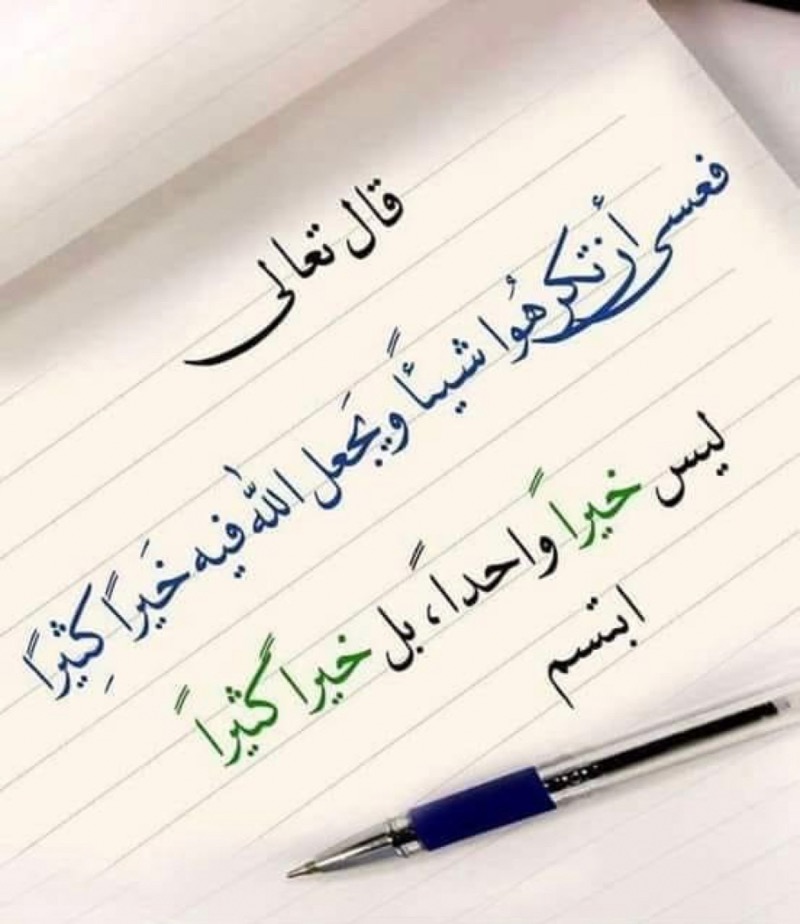 قال تعالى
فعسى أن تكرهُوا شيئاً ويجعَل الله فيه خَيراً كِثيراً
ليس خيراً واحداً، بل خيراً كثيراً
ابتسم